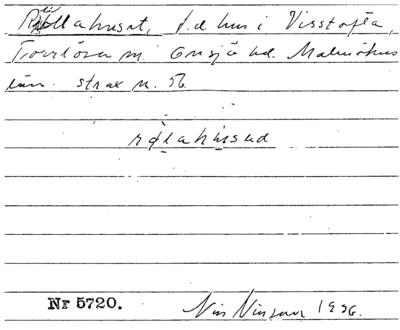 Röllahuset, f.d. hus i Visstofta,
Torrlösa sn. Onsjö hd. Malmöhus
län. strax n. 56
rølahused
Nr 5720. Nils Nilsson 1996.